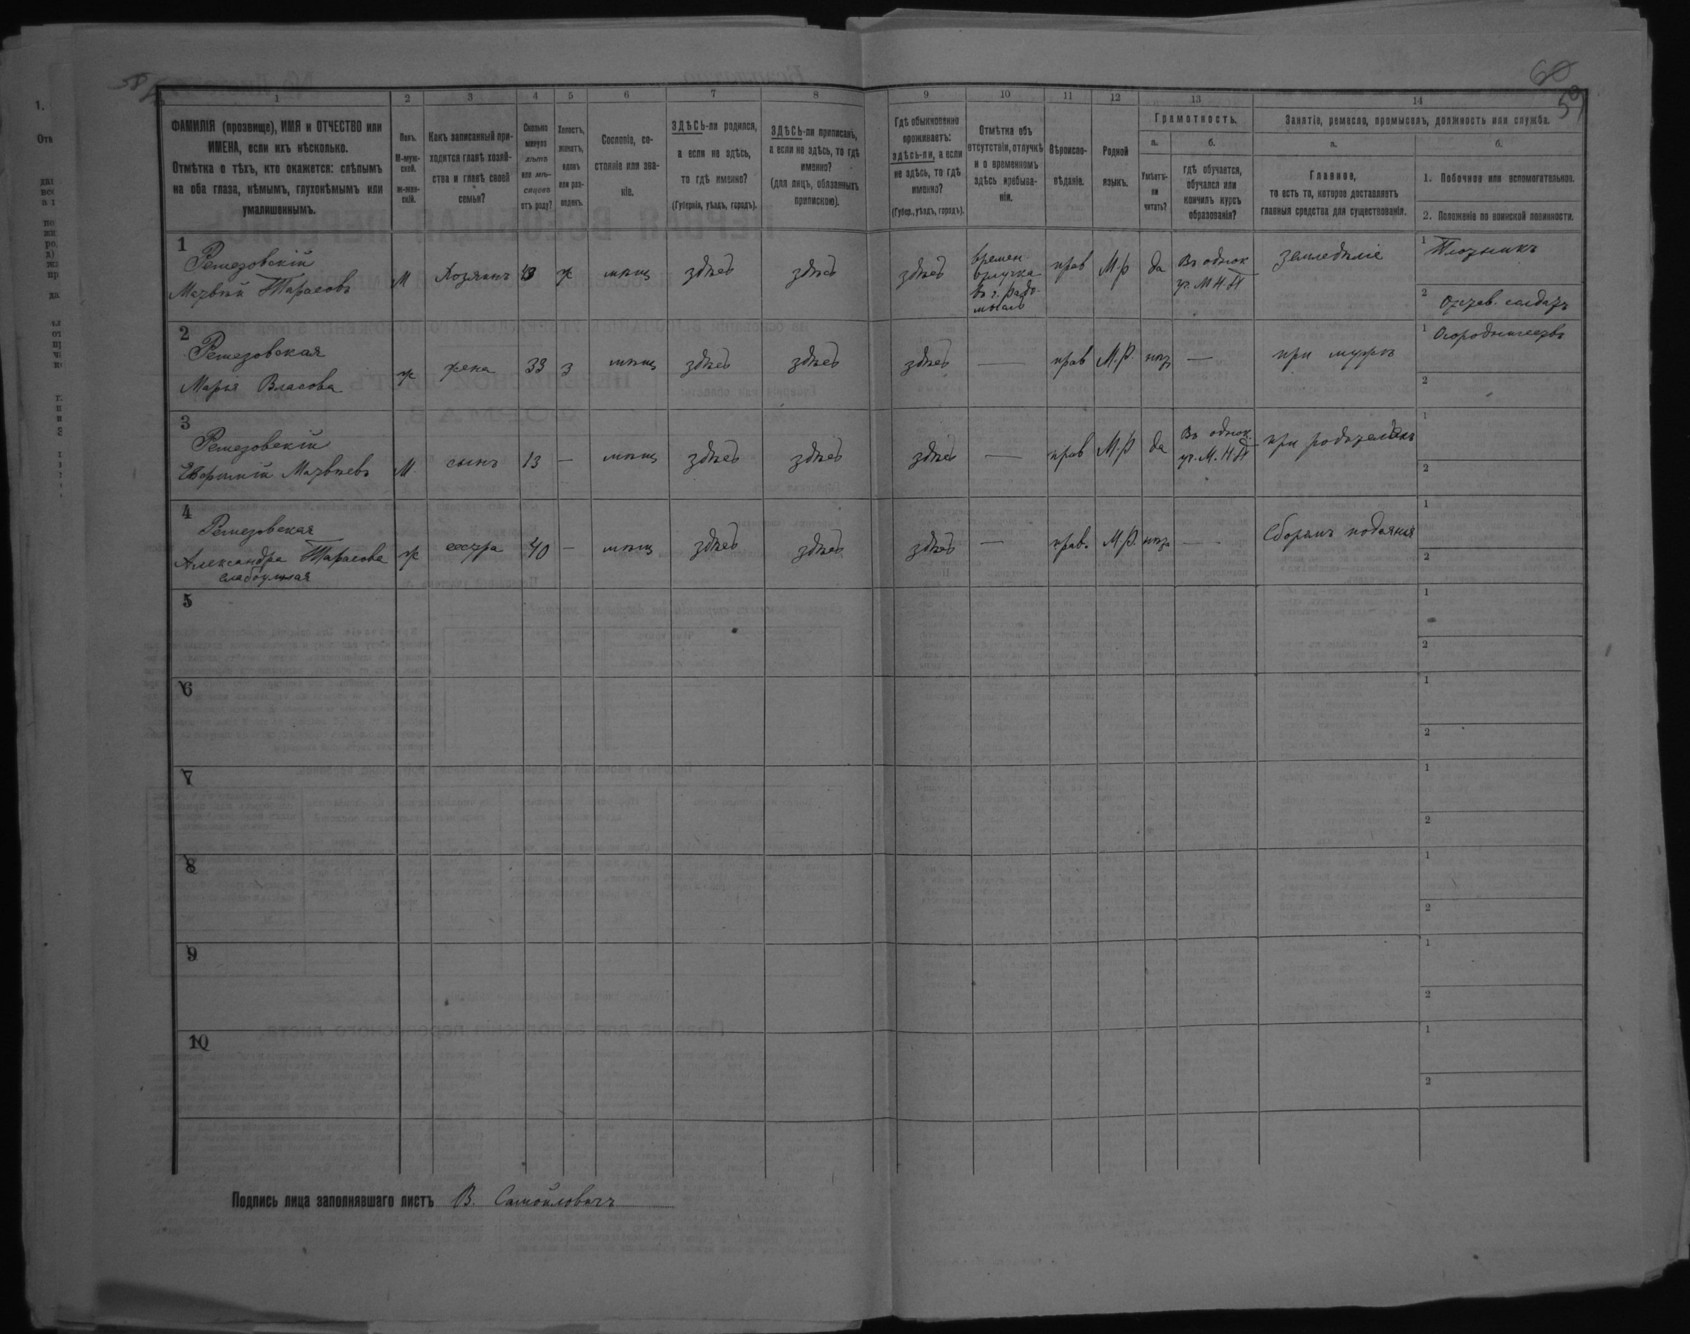 58
60
59
1 2 3 4 5 6 7 8 9 10 11 12 13 14
ФАМИЛІЯ (прозвище), ИМЯ и ОТЧЕСТВО или
ИМЕНА, если ихъ нѣсколько.
Отмѣтка о тѣхъ, кто окажется: слѣпымъ
на оба глаза, нѣмымъ, глухонѣмымъ или
умалишеннымъ.
Полъ.
М-муж-
ской.
ж-жен-
скій.
Какъ записанный при-
ходится главѣ хозяй-
ства и главѣ своей
семьи?
Сколько
минуло
лѣтъ
или мѣся-
цевъ
отъ роду?
Холостъ,
женатъ,
вдовъ
или раз-
веденъ.
Сословіе, со-
стояніе или зва-
ніе.
ЗДѢСЬ-ли родился,
а если не здѣсь,
то гдѣ именно?
(Губернія, уѣздъ, городъ).
ЗДѢСЬ-ли приписанъ,
а если не здѣсь, то гдѣ
именно?
(для лицъ, обязанныхъ
припискою).
Гдѣ обыкновенно
проживаетъ:
здѣсь-ли, а если
не здѣсь, то гдѣ
именно?
(Губер., уѣздъ, городъ).
Отмѣтка объ
отсутствіи, отлучкѣ
и о временномъ
здѣсь пребыва-
ніи.
Вѣроиспо-
вѣданіе.
Родной
языкъ.
Грамотность.
а.
Умѣетъ-
ли
читать?
б.
гдѣ обучается,
обучался или
кончилъ курсъ
образованія?
Занятіе, ремесло, промыселъ, должность или служба.
а.
Главное,
то есть то, которое доставляетъ
главныя средства для существованія.
б.
1. Побочное или вспомогательное.
2. Положеніе по воинской повинности.
1
Ремезовскій
Матвѣй Тарасовъ
М Хозяинъ 43 ж мѣщ здѣсь здѣсь здѣсь
времен
отлучка
въ г. Радо-
мыслѣ
прав М.р да
Въ однок
уч. М Н П
земледѣліе
1 Плотникъ
2 Отстав. солдатъ
2
Ремезовская
Марья Власова
ж жена 33 з мѣщ здѣсь здѣсь здѣсь — прав М.Р нѣтъ — при мужѣ
1 Огородничество
2
3
Ремезовскій
Евфимій Матвѣевъ
М сынъ 13 — мѣщ здѣсь здѣсь здѣсь — прав М.Р да
Въ однок.
уч. М. Н П
при родителяхъ
1
2
4
Ремезовская
Александра Тарасова
слабоумная
ж сестра 40 — мѣщ здѣсь здѣсь здѣсь — прав. М.Р. нѣтъ — Сборомъ подаянія
1
2
5
1
2
6
1
2
7
1
2
8
1
2
9
1
2
10
1
2
Подпись лица заполнявшаго листъ В. Самойловичъ